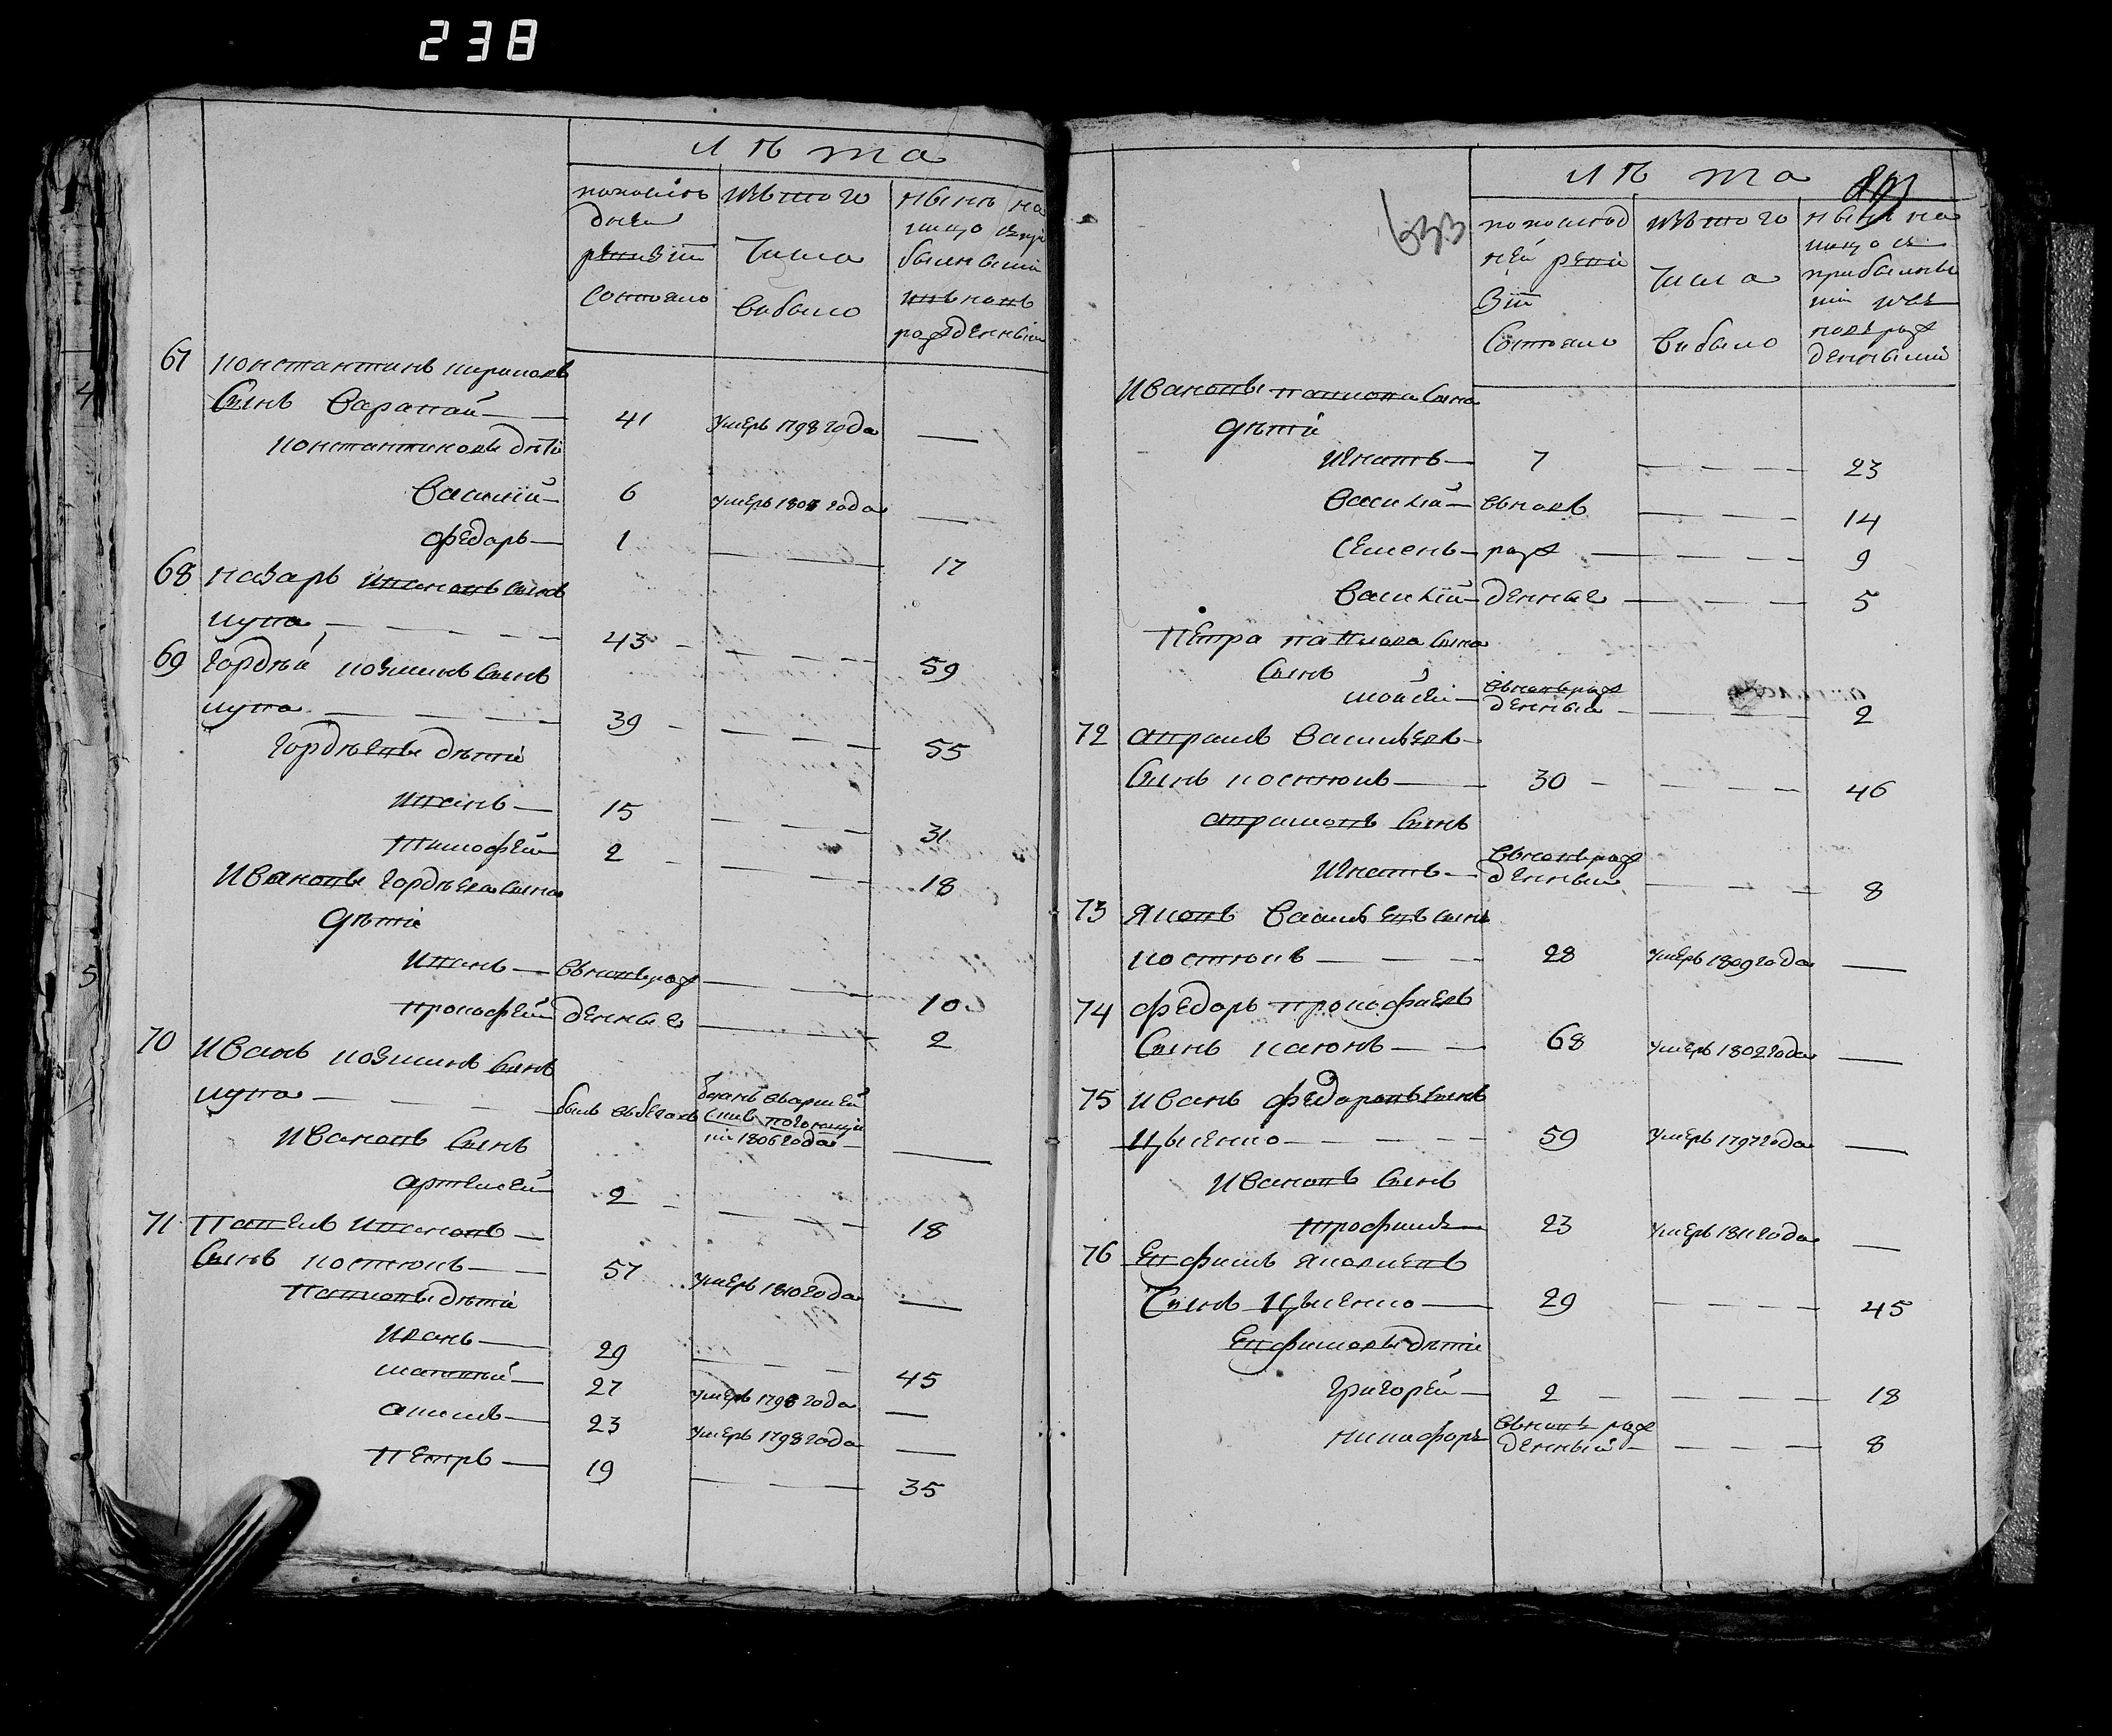 238
лѣта
попослѣ
днеи
ревизіи
Состояло
изътого
Числа
выбыло
нынѣ на
лицо съпри
былными
изъновъ
рожденными
67 Константинъ кириловъ
Сынъ Варапай 41 умеръ 1798 года —
Константиновы дѣти
Василій 6 умеръ года —
Федоръ 1 — 17
68 Назаръ ивановъ сынъ
лупа 43 — 59
69 Гордѣй козминъ сынъ
лупа 39 — 55
Гордѣевы дѣти
Иванъ 15 — 31
Тимофей 2 — 18
Ивановы Гордѣева сына
Дѣти
Иванъ вновь рож — 10
Прокофей денные — 2
70 Иванъ козминъ сынъ
лупа былъ вбегахъ
ни 1806 года —
Ивановъ Сынъ
артемей 2 — 18
71 Павелъ ивановъ
Сынъ костюкъ 57 умеръ 1810 года —
Павловы дѣти
Иванъ 29 — 45
матвѣй 27 умеръ 1798 года —
23 умеръ 1798 года —
Петръ 19 — 35
лѣта
633
попослѣд
ней реви
зіи
Состояло
изътого
Числа
выбыло
нынѣ на
лицо съ
прибылны
ми изъ
новъ рож
денными
Ивановы павлова сына
дѣти
Игнатъ 7 — 23
Василій вновь — 14
Семенъ рож — 9
Василій денные — 5
Петра павлова сына
Сынъ
моисей вновь рож
денный — 2
72 аврамъ Васильевъ
Сынъ костюкъ 30 — 46
аврамовъ Сынъ
Игнатъ вновь рож
денный — 8
73 Яковъ Васильевъ сынъ
костюкъ 28 умеръ 1809 года —
74 Федоръ прокофиевъ
Сынъ 68 умеръ 1802 года —
75 Иванъ Федоровъ сынъ
59 умеръ 1797 года —
Ивановъ Сынъ
трофимъ 23 умеръ 1811 года —
76 Евфимъ Яковлевъ
Сынъ 29 — 45
Евфимовы дѣти
Григорей 2 — 18
никифоръ вновь рож
денный — 8